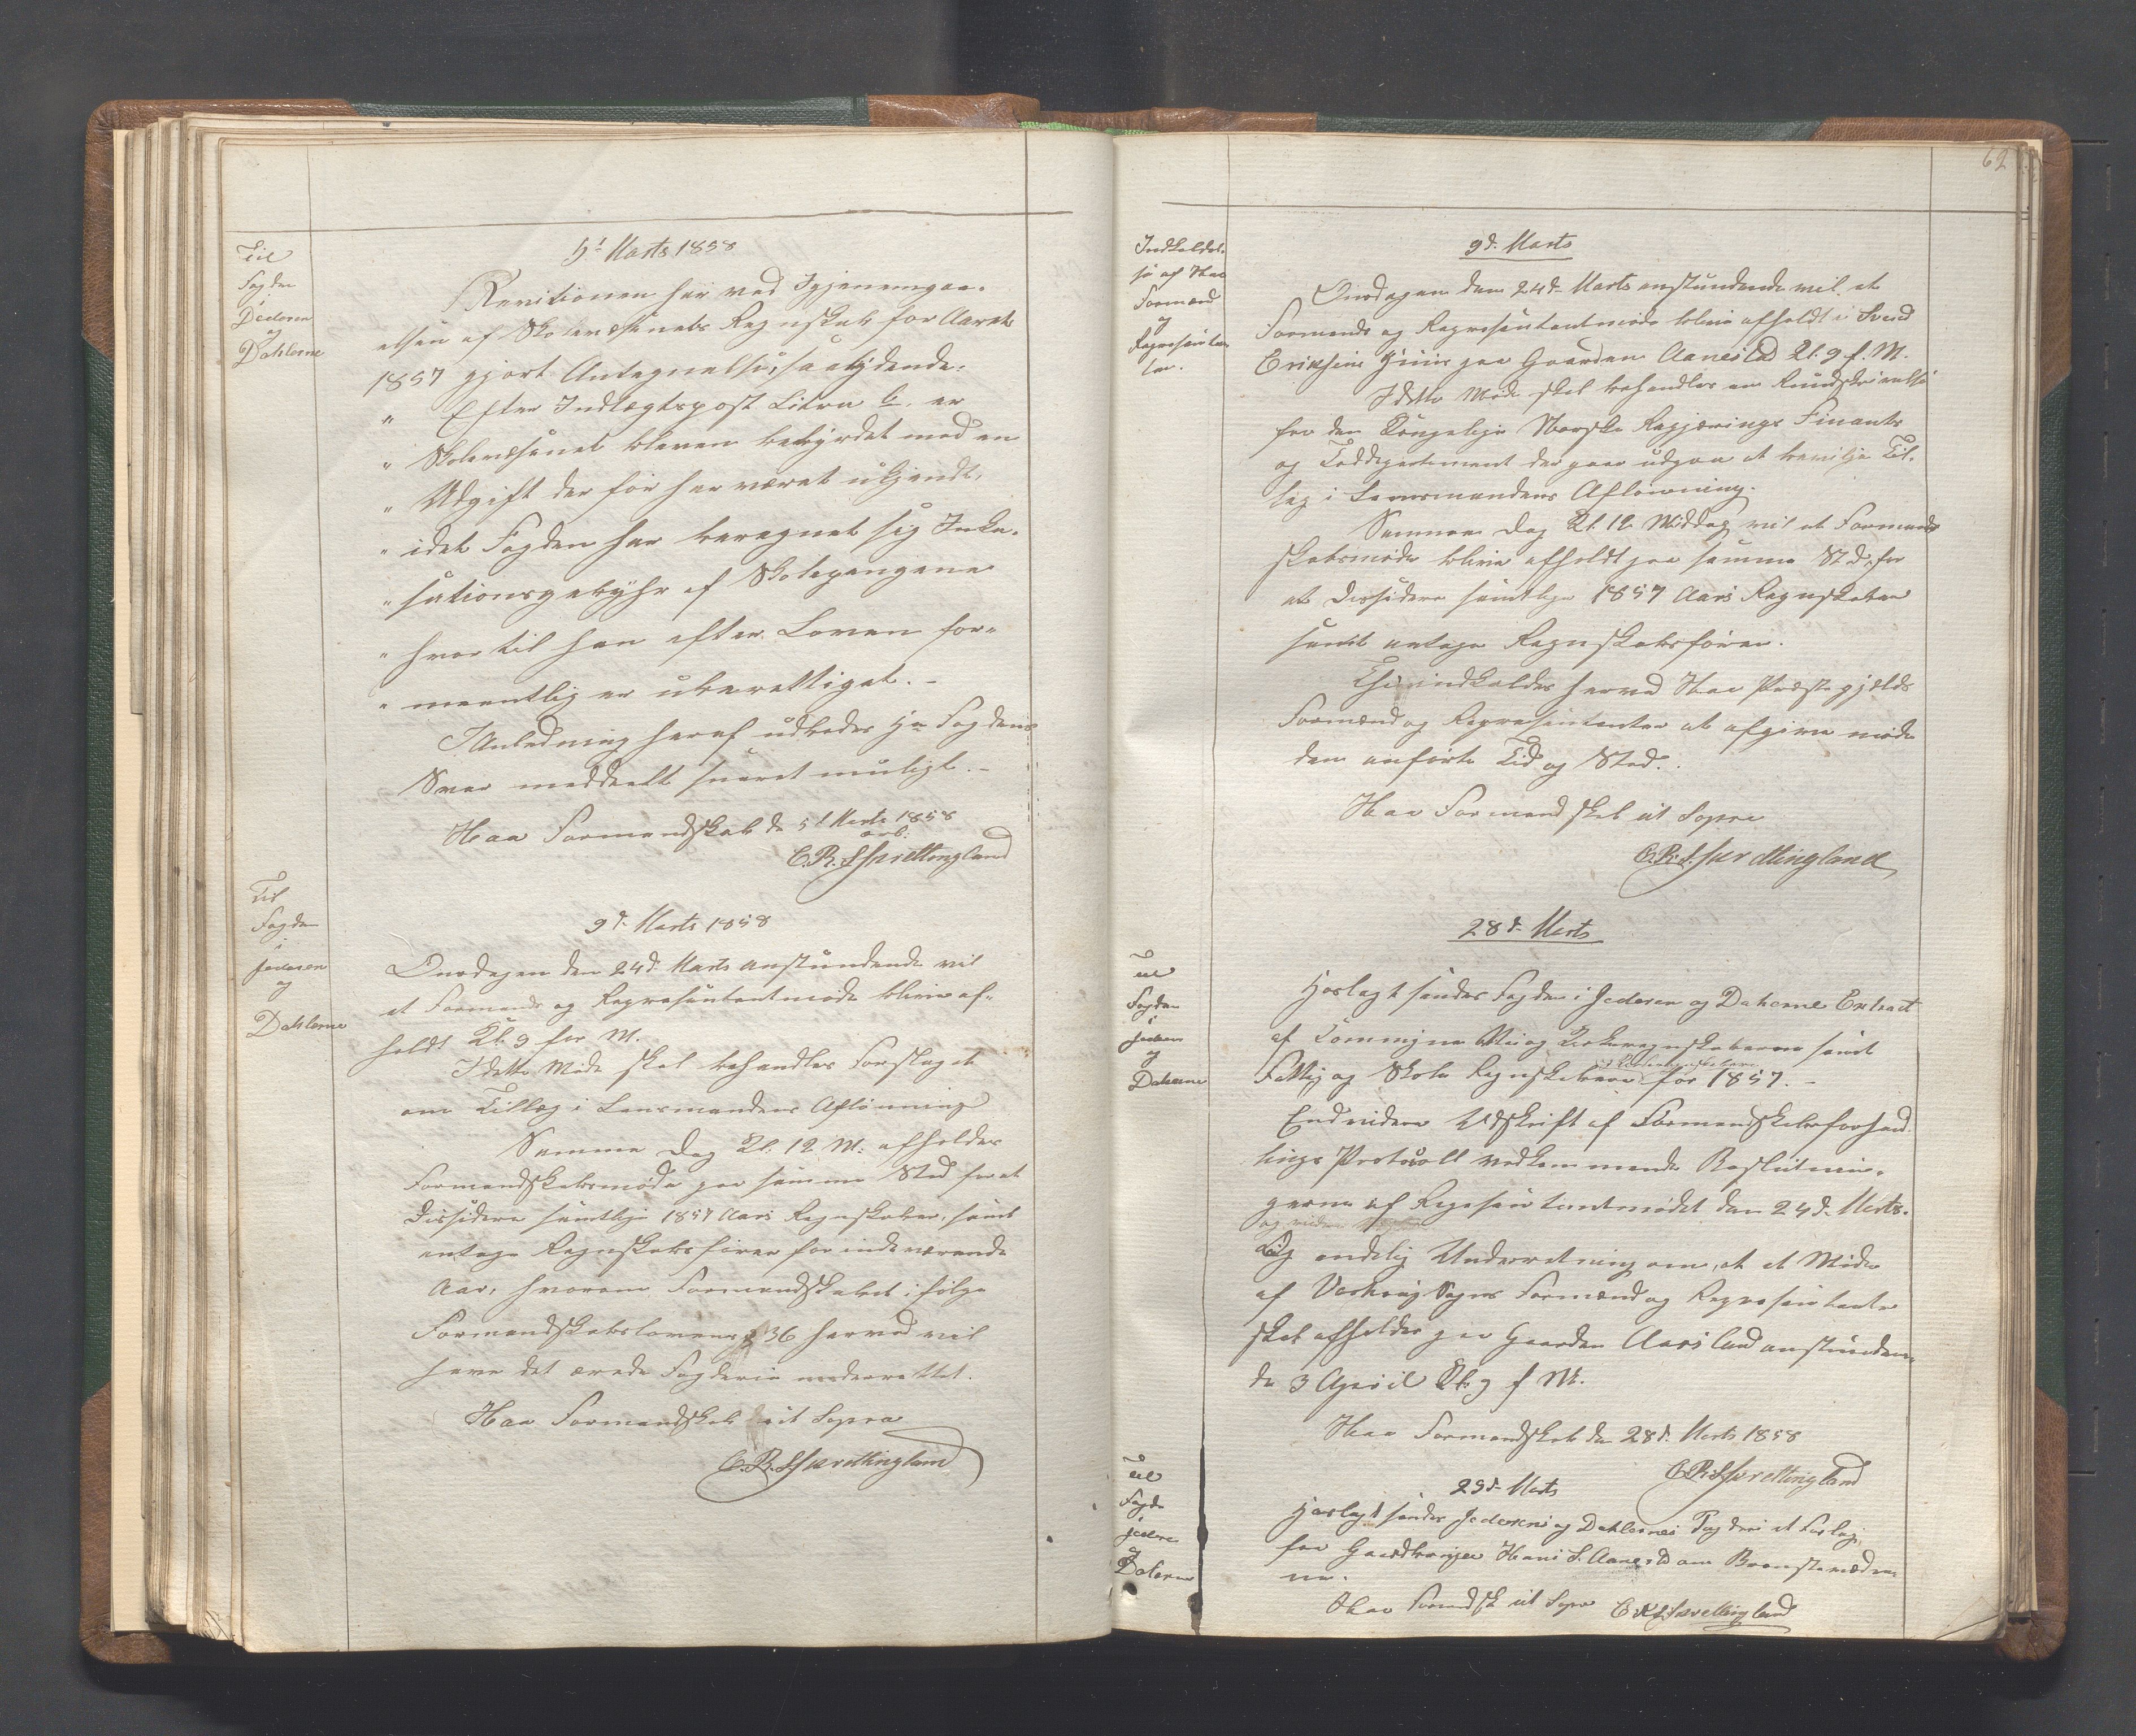 Til
Fogden
i
Jederen
og
Dahlerne
5t Marts 1858
Revitionen har ved Igjenemgaa-
elsen af Skolevæsenets Regnskab for Aaret
1857 gjort Antegnelse, saalydende:
" Efter Indlægtspost Litra b. er
" Skolevæsenet bleven bebyrdet med en
" Udgift der før har været ukjendt,
" idet Fogden har beregnet sig Inka-
" sationsgebyhr af Skolepengene
" hvortil han efter Loven for-
" mentlig er uberettiget. -
I Anledning heraf udbedes Hr Fogdens
Svar meddeelt snarest muligt. -
Haa Formandskab d 5t Marts 1858
arb.
C. R. S. Svrettingland
Til
Fogden
i
Jederen
og
Dahlerne
9d. Marts 1858
Onsdagen den 24d. Marts anstundende vil
et Formands og Repræsentantmøde blive af-
holdt Kl. 9 for M.
I dette Møde skal behandles Forslaget
om Tillæg i Lensmandens Aflønning
Samme Dag Kl. 12 M: afholdes
Formandskabsmøde paa samme Sted for at
Dissidere samtlige 1857 Aars Regnskaber, samt
antage Regnskabsfører for indeværende
Aar, hvorom Formandskabet i følge
Formandskabslovens § 36 herved vil
have det ærede Fogderie underrettet.
Haa Formandskab ut Supra
C. R. S. Svrettingland
62
Indkaldel-
se af Haa
Formænd
og
Repræsentan
ter.
9d. Marts
Onsdagen den 24d. Marts anstundende vil et
Formands og Repræsentantmøde blive afholdt i Svend
Eriksens Huus paa Gaarden Aanestad Kl. 9 f. M.
I dette Møde skal behandles en Rundskrivelse
fra den Kongelige Norske Regjerings Finants
og Tolddepartement der gaar ud paa at bevilge Til-
læg i Lensmandens Aflønning.
Samme Dag Kl. 12 Middag vil et Formand
skabsmøde blive afholdt paa samme Sted, for
at Dissidere samtlige 1857 Aars Regnskaber
samt antage Regnskabsfører.
Thi indkaldes herved Haa Præstegjelds
Formænd og Repræsentanter at afgive møde
den anførte Tid og Sted.
Haa Formandskab ut Supra
C. R. S. Svrettingland
Til
Fogden
i
Jederen
og
Dalerne
28d. Marts
Hoslagt sendes Fogden i Jederen og Dalerne Extract
af Commune Vei og Kirkeregnskaberne samt
Fattig og Skole Regnskaberne for 1857. -
Endvidere Udskrift af Formandskabsforhand
lings Protokoll vedkommende Beslutnin-
gerne af Repræsentantmødet den 24d. Marts.
Og endelig Underretning om, at et Møde
af Varhoug Sogns Formænd og Repræsentanter
skal afholdes paa Gaarden Aarsland anstunden-
de 3 April Kl. 9 f M.
Haa Formandskab den 28d. Marts 1858
C. R. S. Svrettingland
Til
Fogden
i
Jederen
Dalerne
29d. Marts
Hoslagt sendes Jederens og Dahlernes Fogderi et Forslag
fra Gaardbruger Hans S. Aanestad om Brandstævdene
ne.
Haa Formandsk ut Supra C. R. S. Svrettingland